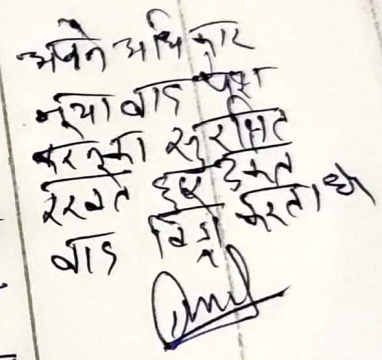 अपने अधिकार
नया वाद पेश
करने का सुरक्षित
रखते हुए उक्त
वाद विड्रॉ करता हूँ